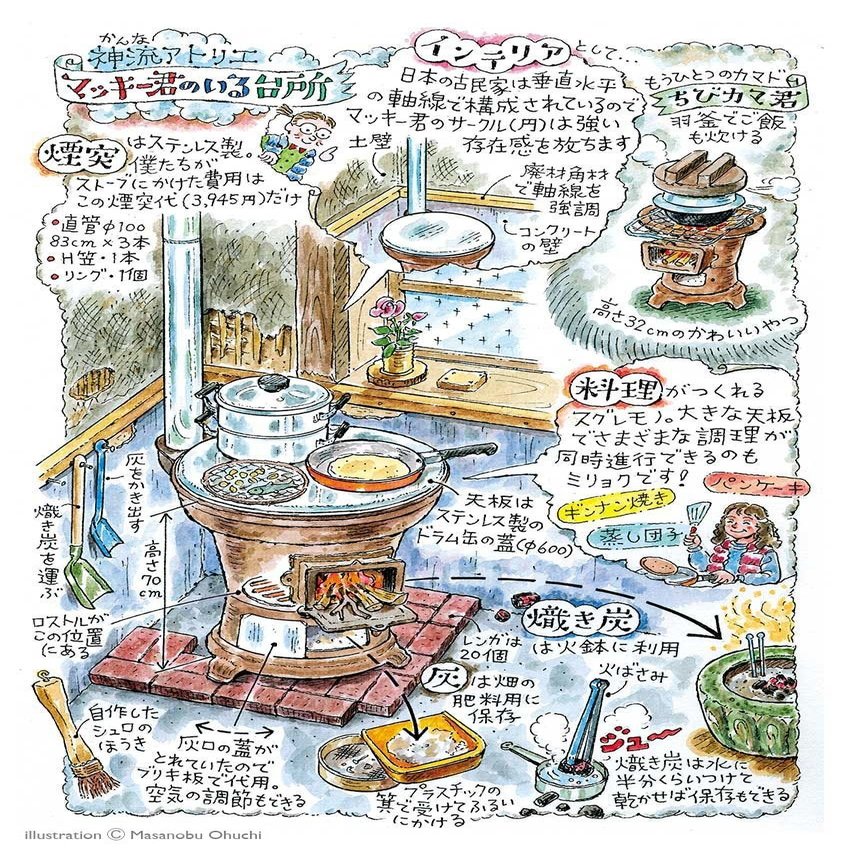 かんな
神流アトリエ
マッキー君のいる台所
煙突はステンレス製。
僕たちが
ストーブにかけた費用は
この煙突代(3,945円)だけ
•直管φ100
83cm×3本
•H笠・1本
•リング・1個
インテリアとして…
日本の古民家は垂直水平
の軸線で構成されているので
マッキー君のサークル(円)は強い
存在感を放ちます
土壁
廃材角材
で軸線を
強調
コンクリート
の壁
もうひとつのカマド
ちびカマ君
羽釜でご飯
も炊ける
高さ32cmのかわいいやつ
料理がつくれる
スグレモノ。大きな天板
でさまざまな調理が
同時進行できるのも
ミリョクです!
パンケーキ
ギンナン焼き
蒸し団子
灰をかき出す
熾き炭を運ぶ
高さ70cm
天板は
ステンレス製の
ドラム缶の蓋(φ600)
ロストルが
この位置
にある
レンガは
20個
熾き炭
は火鉢に利用
火ばさみ
灰は畑の
肥料用に
保存
自作した
シュロの
ほうき
灰口の蓋が
とれていたので
ブリキ板で代用。
空気の調節もできる
プラスチックの
箕で受けてふるい
にかける
ジュー
熾き炭は水に
半分くらいつけて
乾かせば保存もできる
illustration © Masanobu Ohuchi